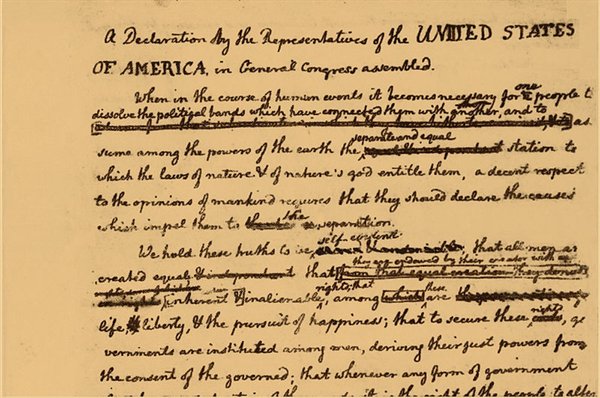 A Declaration by the Representatives of the UNITED STATES
OF AMERICA, in General Congress assembled.
one
When in the course of human events it becomes necessary for a people to
dissolve the political bands which have connected them with another, and to
as
separate and equal
sume among the powers of the earth the station to
which the laws of nature & of nature's god entitle them, a decent respect
to the opinions of mankind requires that they should declare the causes
which impel them to the separation.
self-evident
We hold these truths to be that all men are
they are endowed by their creator with
created equal & independent that from that equal creation they derive
rights; that these
inherent & inalienable, among which are
rights
life & liberty, & the pursuit of happiness; that to secure these ends, go
vernments are instituted among men, deriving their just powers from
the consent of the governed; that whenever any form of government
it is the right of the people to alter